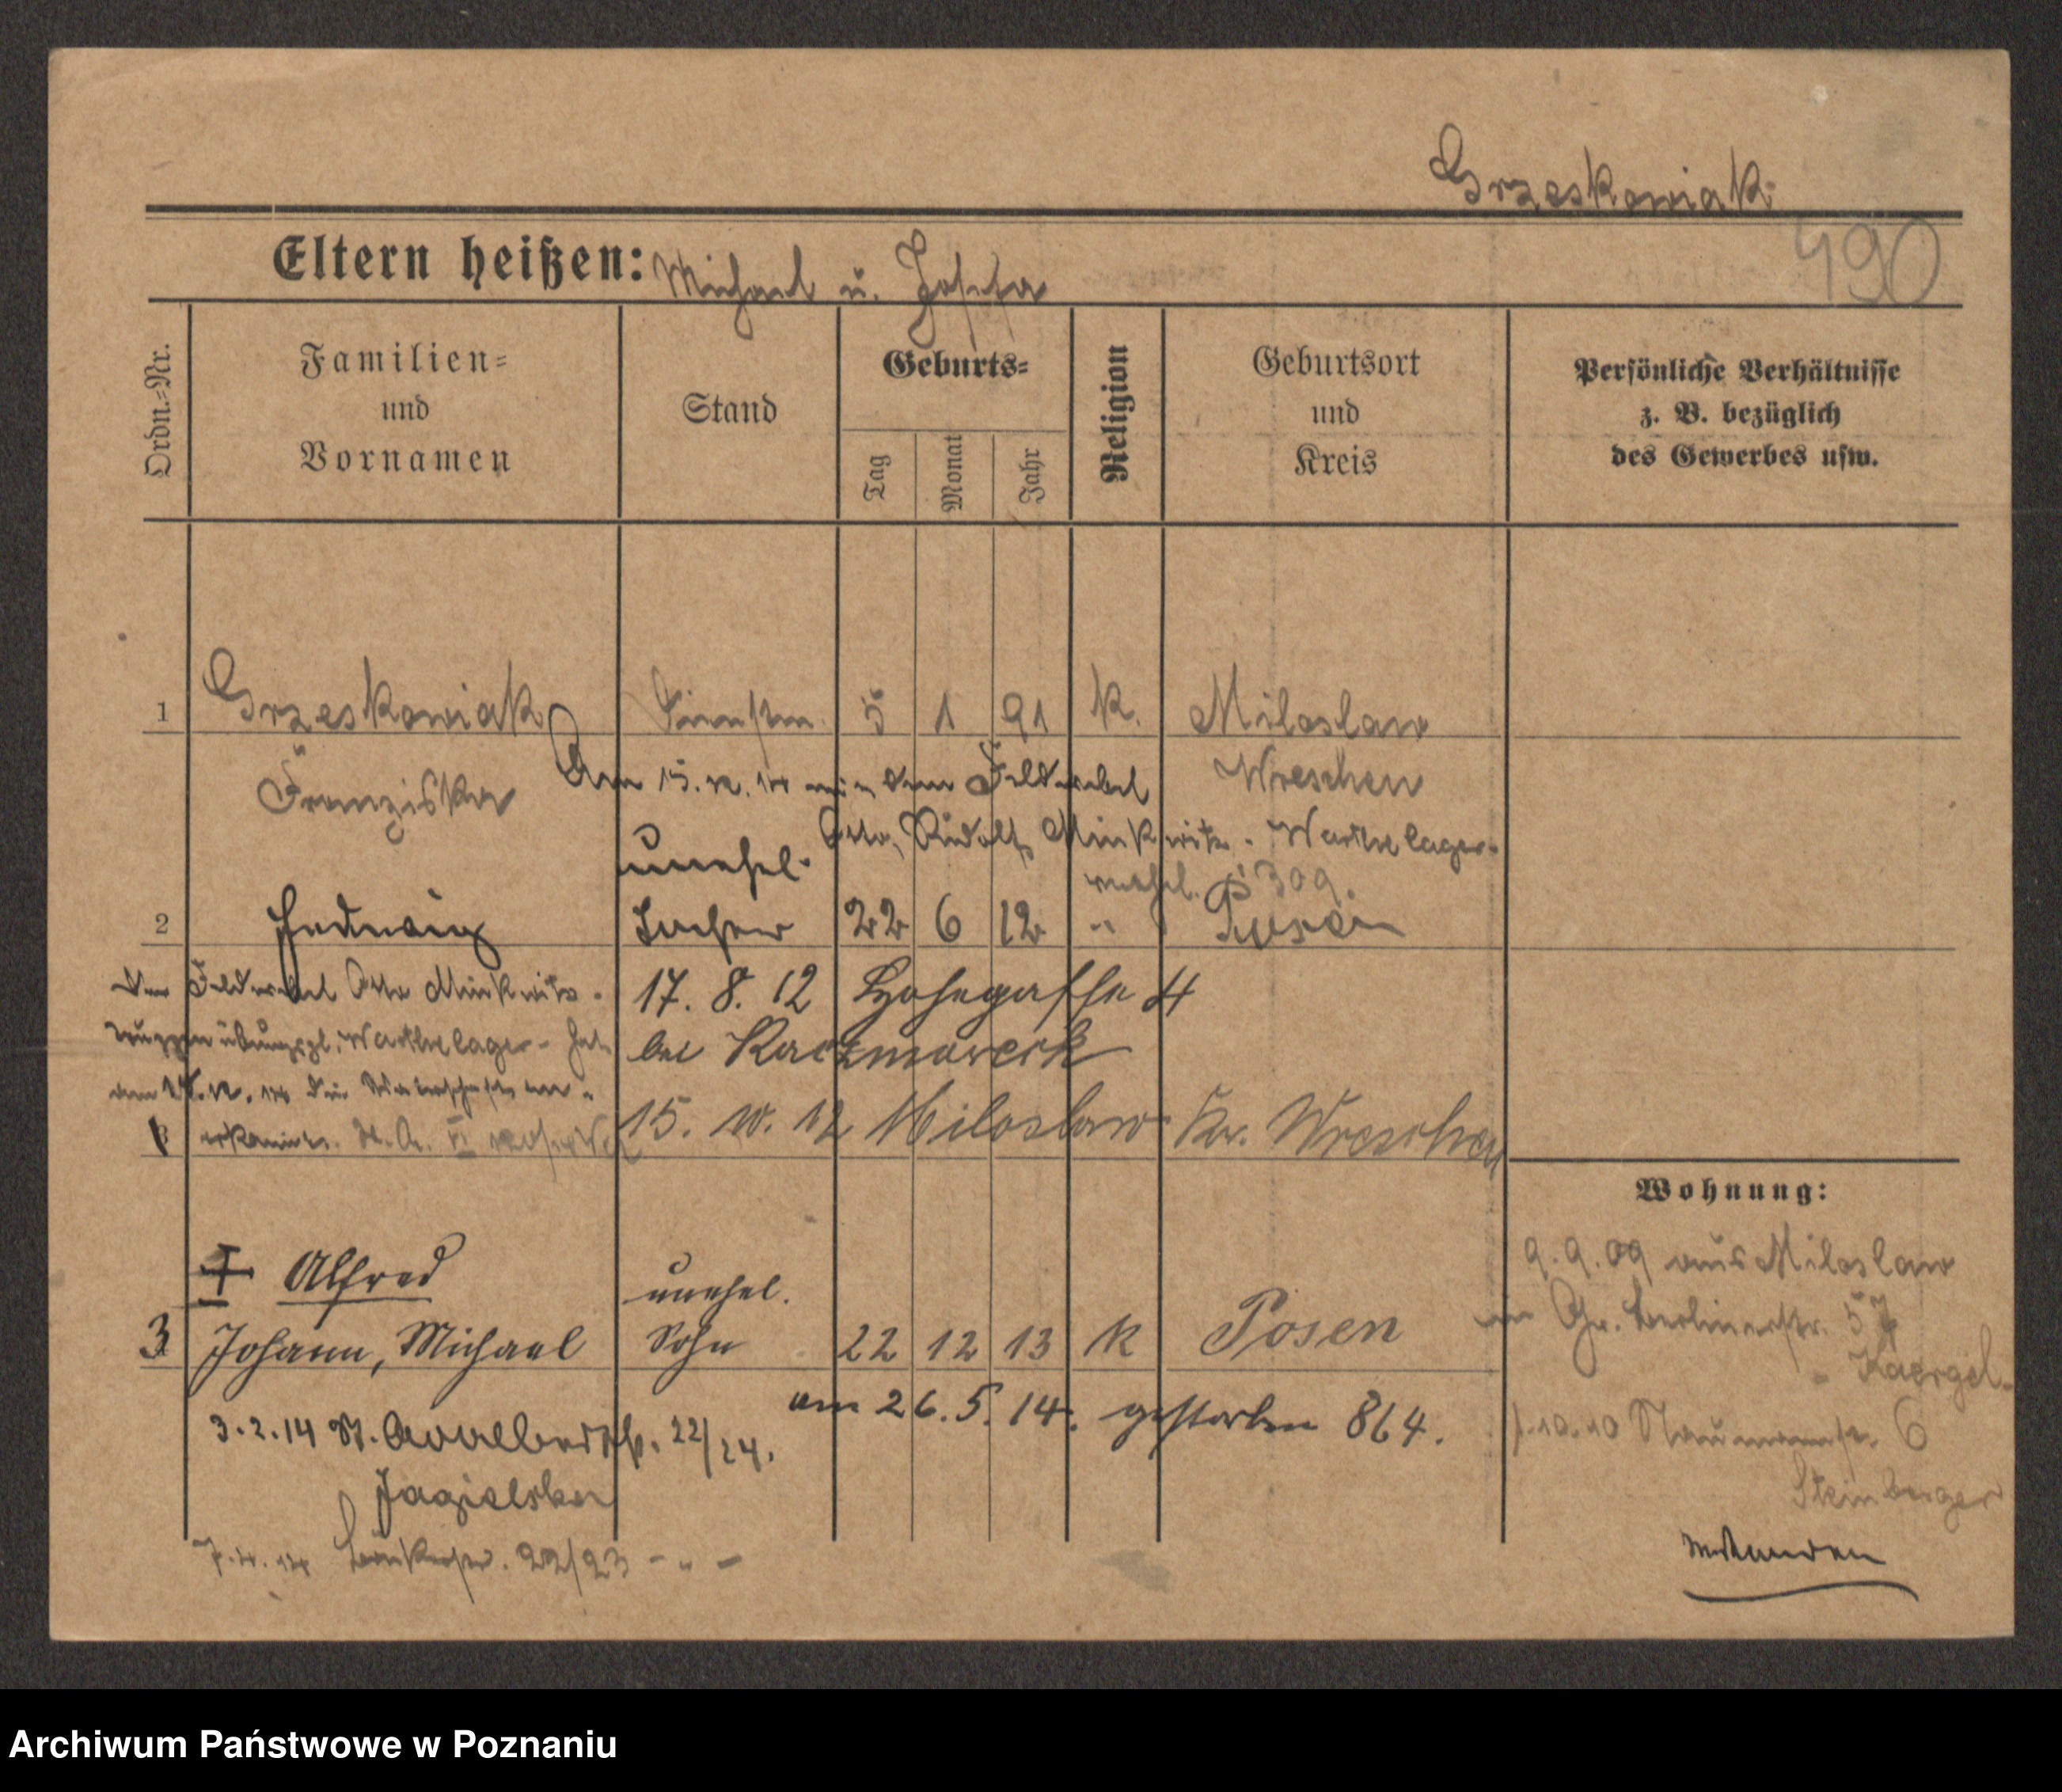 Grzeskowiak
490
Eltern heißen: Michael u. Josefa
Ordn.-Nr.
Familien-
und
Vornamen
Stand
Geburts-
Tag
Monat
Jahr
Religion
Geburtsort
und
Kreis
Persönliche Verhältnisse
z. B. bezüglich
des Gewerbes usw.
1 Grzeskowiak 5 1 91 k. Miloslaw
Franziska
Wreschen
Am 15. 12. 14 dem Feldwebel
Otto, Rudolf, Minkwitz. Warthelager
verehel. 1309.
unehel.
2 Hedwig Tochter 22 6 12 " Posen
Der Feldwebel Otto Minkwitz
Truppenübungspl. Warthelager hat
am die Vaterschaft an-
erkannt.
17. 8. 12 Hohegasse 4
bei Kaczmarek
15. 10. 12 Miloslaw Kr. Wreschen
Alfred
unehel.
3 Johann, Michael Sohn 22 12 13 k Posen
am 26. 5. 14. gestorben 864.
3. 2. 14 St. Adalbertstr. 22/24.
Jagielska
7. 4. 14 22/23 - " -
Wohnung:
9. 9. 09 aus Miloslaw
in Gr. Berlinerstr. 57
Kaergel
1. 10. 10 Naumannstr. 6
Steinberger
Archiwum Państwowe w Poznaniu